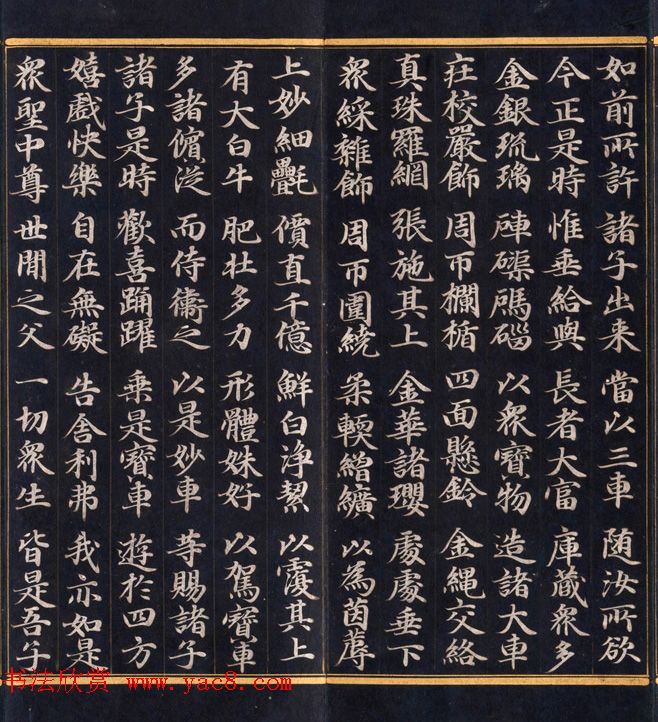 如前所許 諸子出来 當以三車 随汝所欲
今正是時 惟垂給與 長者大富 庫藏眾多
金銀琉璃 硨磲碼碯 以眾寶物 造諸大車
莊校嚴飾 周帀欄楯 四面懸鈴 金繩交絡
真珠羅網 張施其上 金華諸瓔 處處垂下
眾綵雜飾 周帀圍繞 柔軟繒纊 以為茵蓐
上妙細㲲 價直千億 鮮白净潔 以覆其上
有大白牛 肥壮多力 形體姝好 以駕寶車
多諸儐從 而侍衛之 以是妙車 等賜諸子
諸子是時 歡喜踊躍 乗是寶車 遊於四方
嬉戲快樂 自在無礙 告舎利弗 我亦如是
眾聖中尊 世間之父 一切眾生 皆是吾子
书法欣赏 www.yac8.com